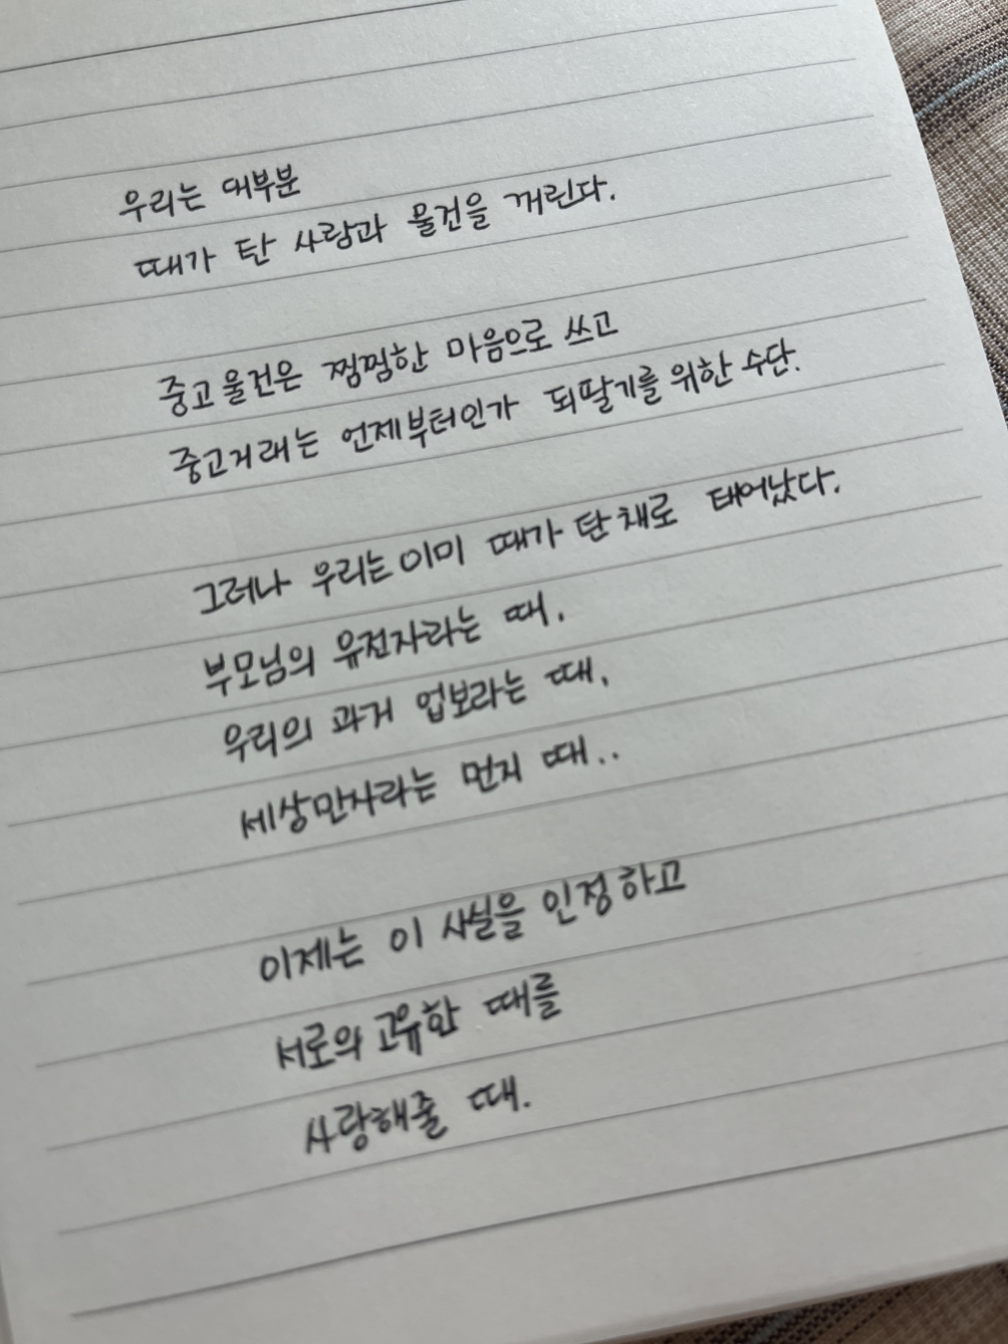 우리는 대부분
때가 탄 사람과 물건을 꺼린다.
중고물건은 찜찜한 마음으로 쓰고
중고거래는 언제부터인가 되팔기를 위한 수단.
그러나 우리는 이미 때가 탄 채로 태어났다.
부모님의 유전자라는 때.
우리의 과거 업보라는 때.
세상만사라는 먼지 때..
이제는 이 사실을 인정하고
서로의 고유한 때를
사랑해줄 때.